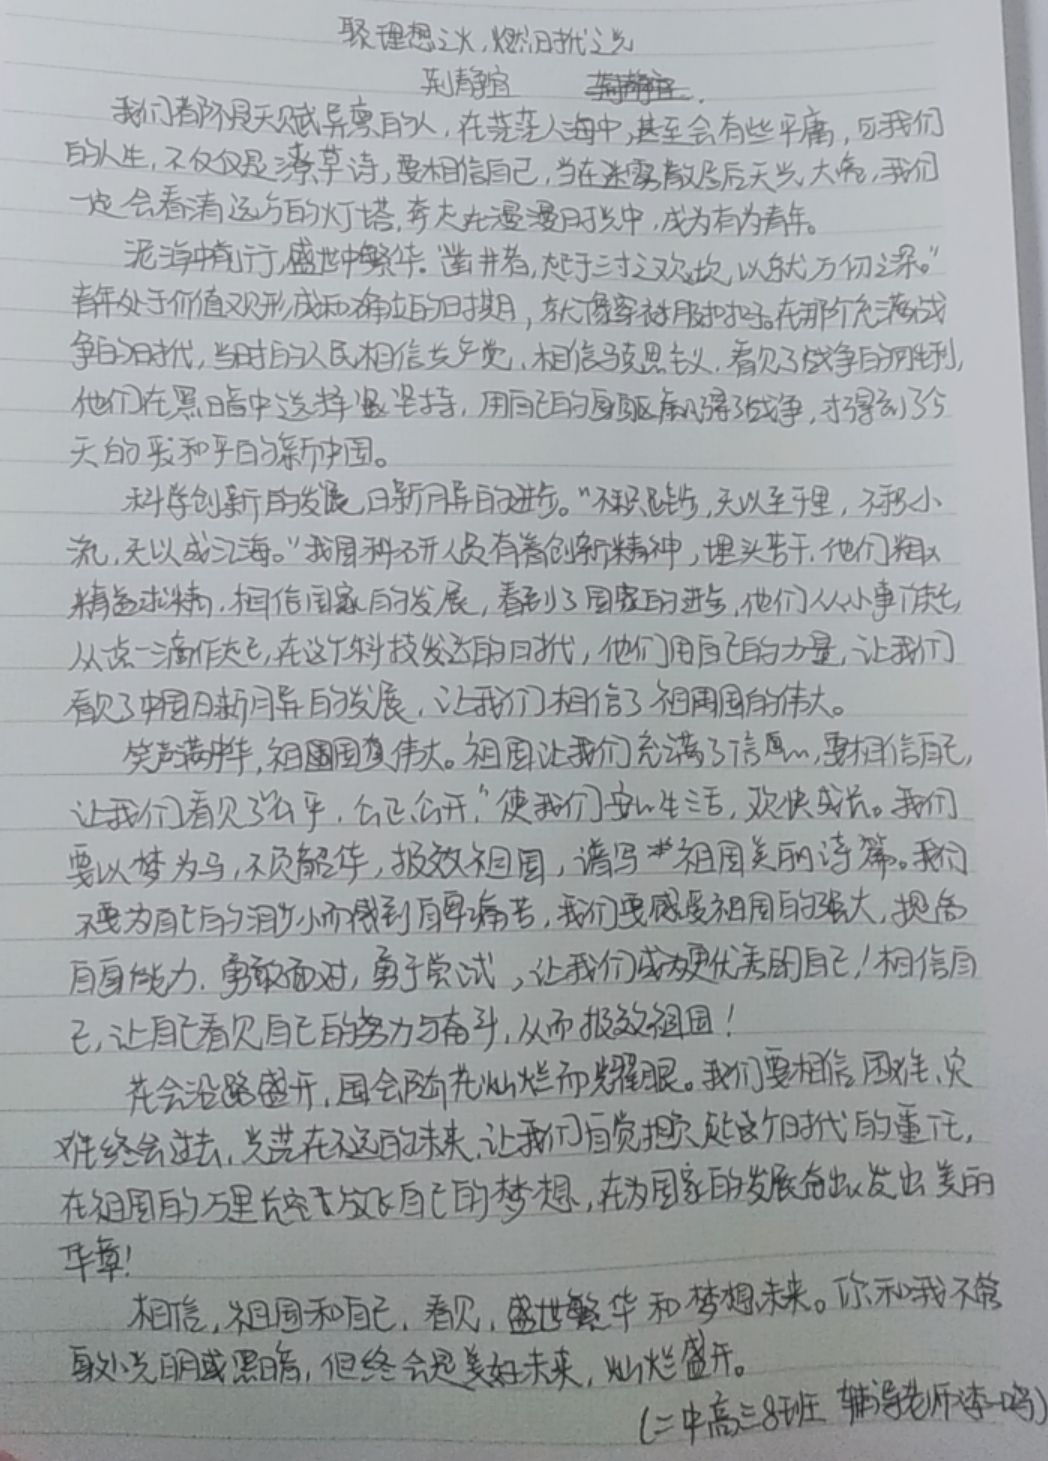 聚理想之火,燃时代之光
荆静宜
我们都不是天赋异禀的人,在茫茫人海中,甚至会有些平庸,可我们
的人生,不仅仅是潦草诗,要相信自己,当在迷雾散尽后天光大亮,我们
一定会看清远方的灯塔,奔走在漫漫时光中,成为有为青年。
泥泞中前行,盛世中繁华。“凿井者,起于三寸之坎,以就万仞之深。”
青年处于价值观形成和确立的时期,就像穿衣服扣扣子。在那个充满战
争的时代,当时的人民相信共产党,相信马克思主义,看见了战争的胜利,
他们在黑暗中选择坚持,用自己的身躯赢得了战争,才得到了今
天的和平的新中国。
科学创新的发展,日新月异的进步。“不积跬步,无以至千里,不积小
流,无以成江海。”我国科研人员有着创新精神,埋头苦干,他们
精益求精,相信国家的发展,看到了国家的进步,他们从小事做起,
从点一滴作起,在这个科技发达的时代,他们用自己的力量,让我们
看见了中国日新月异的发展,让我们相信了祖国的伟大。
笑声满中华,祖国真伟大。祖国让我们充满了信息,要相信自己,
让我们看见了“公平,公正公开,”使我们安心生活,欢快成长。我们
要以梦为马,不负韶华,报效祖国,谱写祖国美丽诗篇。我们
不要为自己的渺小而感到自卑痛苦,我们要感受祖国的强大,提高
自身能力,勇敢面对,勇于尝试,让我们成为更优秀的自己!相信自
己,让自己看见自己的努力与奋斗,从而报效祖国!
花会沿路盛开,国会随花灿烂而耀眼。我们要相信困难、灾
难终会过去,光芒在不远的未来,让我们自觉担负起这个时代的重任,
在祖国的万里长空放飞自己的梦想,在为国家的发展奋出发出美丽
华章!
相信,祖国和自己,看见,盛世繁华和梦想未来。你和我不管
渺小光明或黑暗,但终会是美好未来,灿烂盛开。
(二中高三8班 辅导老师:李一鸣)